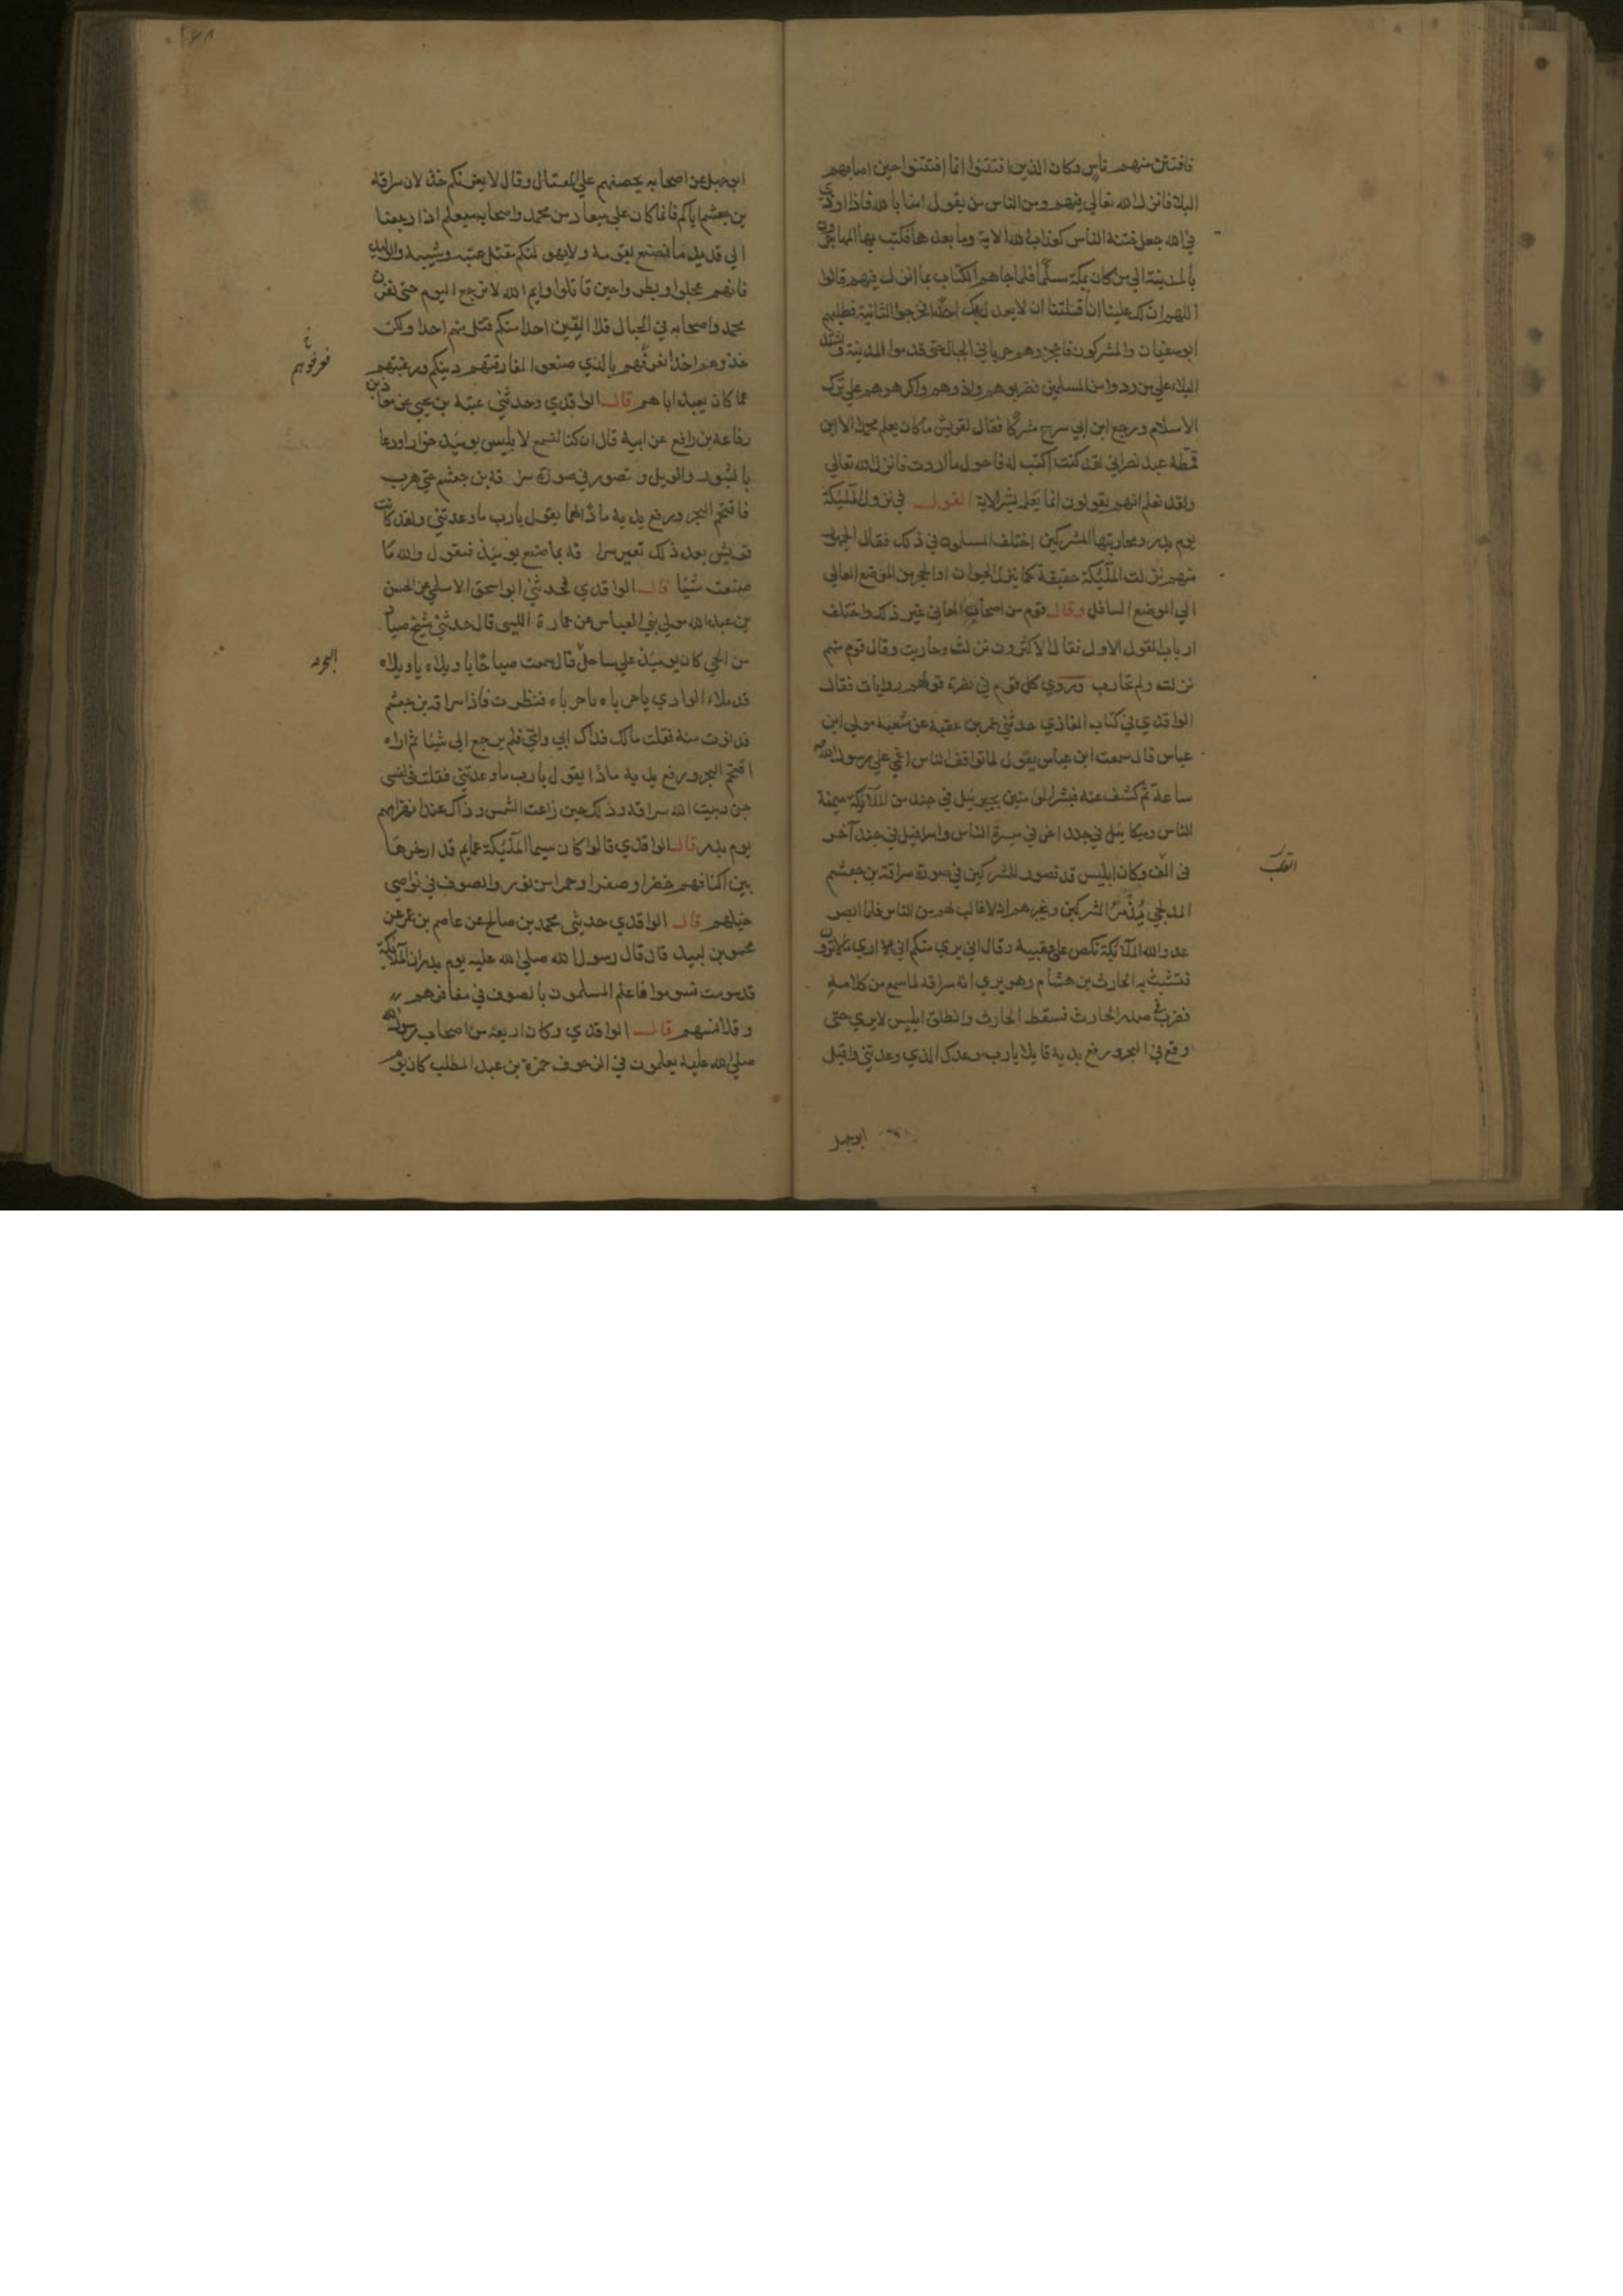 فافتتن منهم ناس وكان الذين افتتنوا انما افتتنوا حين اصابهم
البلا فانزل الله تعالي فيهم ومن الناس من يقول امنا بالله فاذا اوذي
في الله جعل فتنة الناس كعذاب الله الاية وما بعدها فكتب بها المهاجرون
بالمدينة الي من كان بمكة مسلما فلما جاهم الكتاب بما انزل فيهم قالوا
اللهم ان لك علينا ان افلتنا ان لا نعدل بك احدا فخرجوا الثانية فطلبهم
ابوسفيان والمشركون فاعجزوهم هربا في الجبال حتي قدموا المدينة واشتد
البلاء علي من ردوا من المسلمين فضربوهم واذوهم واكرهوهم علي ترك
الاسلام ورجع ابن ابي سرح مشركا فقال لقريش ما كان يعلم محمدا الا ابن
قمطة عبد نصراني لقد كنت اكتب له فاحول ما اردت فانزل الله تعالي
ولقد نعلم انهم يقولون انما يعلمه بشر الاية القول في نزول الملئكة
يوم بدر ومحاربتها المشركين اختلف المسلمون في ذلك فقال الجمهور
منهم نزلت الملئكة حقيقة كما ينزل الحيوان او الحجر من الموضع العالي
الي الموضع السافل وقال قوم من اصحاب المعاني غير ذلك واختلف
ارباب القول الاول فقال الاكثرون نزلت وحاربت وقال قوم منهم
نزلت ولم تحارب وروي كل قوم في نصرة قولهم روايات فقال
الواقدي في كتاب المغازي حدثني عمر بن عقبه عن شعبه مولي ابن
عباس قال سمعت ابن عباس يقول لما تواقف الناس اغمي علي رسول الله
ساعة ثم كشف عنه فبشر المؤمنين بجبرئيل في جند من الملائكة ميمنة
الناس وميكائيل في جند اخر في ميسرة الناس واسرافيل في جند آخر
في الف وكان ابليس قد تصور للمشركين في صورة سراقة بن جعشم
المدلجي يذمر المشركين ويخبرهم انه لا غالب لهم من الناس فلما ابصر
عدو الله الملائكة نكص علي عقبيه وقال اني بري منكم اني اري ما لا ترون
فتشبث به الحارث بن هشام وهو يري انه سراقه لما سمع من كلامه
فضرب في صدر الحارث فسقط الحارث وانطلق ابليس لا يري حتي
وقع في البحر ورفع يديه قايلا يا رب وعدك الذي وعدتني واقبل
ابوجهل
ابوجهل عن اصحابه يحضهم علي القتال وقال لا يغرنكم خذلان سراقه
بن جعشم اياكم فانما كان علي ميعاد من محمد واصحابه سيعلم اذا رجعنا
الي قديد ما نصنع بقومه ولا يهولنكم مقتل عتبه وشيبه والوليد
فانهم عجلوا وبطروا حين قاتلوا وايم الله لا نرجع اليوم حتي نقرن
محمد واصحابه في الجبال فلا الفين احدا منكم قتل منهم احدا ولكن
خذوهم اخذا نعرفهم بالذي صنعوا لمفارقتهم دينكم ورغبتهم
عما كان يعبد اباهم قال الواقدي وحدثني عتبة بن يحيي عن معاذ بن
رفاعه بن رافع عن ابيه قال ان كنا لنسمع لابليس يومئذ خوارا ودعا
بالثبور والويل وتصور في صورة سراقة بن جعشم حتي هرب
فاقتحم البحر ورفع يديه مادا لهما يقول يا رب ما وعدتني ولقد كانت
قريش بعد ذلك تعير سراقه بما صنع يومئذ فيقول والله ما
صنعت شيئا قال الواقدي فحدثني ابو اسحق الاسلمي عن الحسن
بن عبد الله مولي بني العباس عن عمارة الليثي قال حدثني شيخ صياد
من الحي كان يومئذ علي ساحل قال سمعت صياحا يا ويلاه يا ويلاه
قد ملاء الوادي يا حرباه يا حرباه فنظرت فاذا سراقه بن جعشم
فدنوت منه فقلت مالك فداك ابي وامي فلم يرجع الي شيئا ثم اراه
اقتحم البحر ورفع يديه مادا يقول يا رب ما وعدتني فقلت في نفسي
جن وبيت الله سراقه وذلك حين زاغت الشمس وذاك عند انهزامهم
يوم بدر قال الواقدي قالوا كان سيما الملئكة عمايم قد ارخوها
بين اكتافهم خضرا وصفرا وحمرا من نور والصوف في نواصي
خيلهم قال الواقدي حدثني محمد بن صالح عن عاصم بن عمر عن
محمود بن لبيد قال قال رسول الله صلي الله عليه يوم بدر ان الملائكة
قد سومت فسوموا فاعلم المسلمون بالصوف في مغافرهم
وقلانسهم قال الواقدي وكان اربعة من اصحاب رسول الله
صلي الله عليه يعلمون في الزحوف حمزة بن عبد المطلب كان يوم
البحر